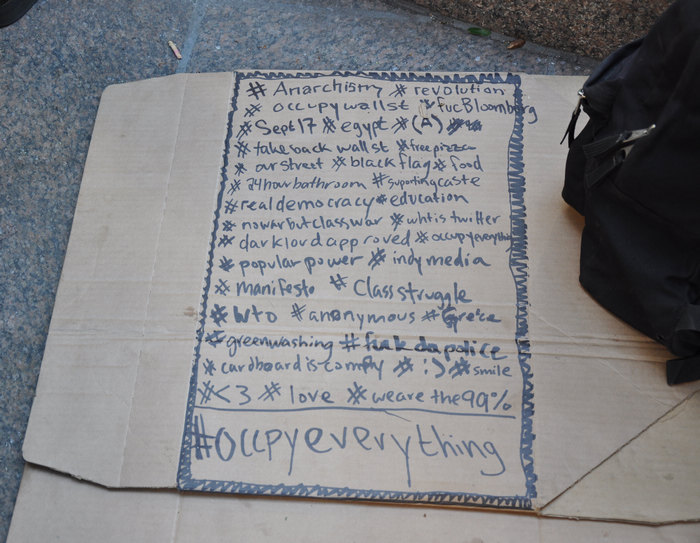 # Anarchism # revolution
# occupy wallst # fucBloomberg
# Sept17 # egypt # (A)
# take back wall st # free pizza
# our street # black flag # food
# 24hour bathroom # suportingcaste
# real democracy # education
# nowar but class war # whtis twitter
# dark lord approved # occupyeverything
# popular power # indymedia
# manifesto # Class struggle
# wto # anonymous # Grece
# greenwashing # fuck da police
# cardboard is comfy # :) # smile
# <3 # love # we are the 99%
#occpyeverything